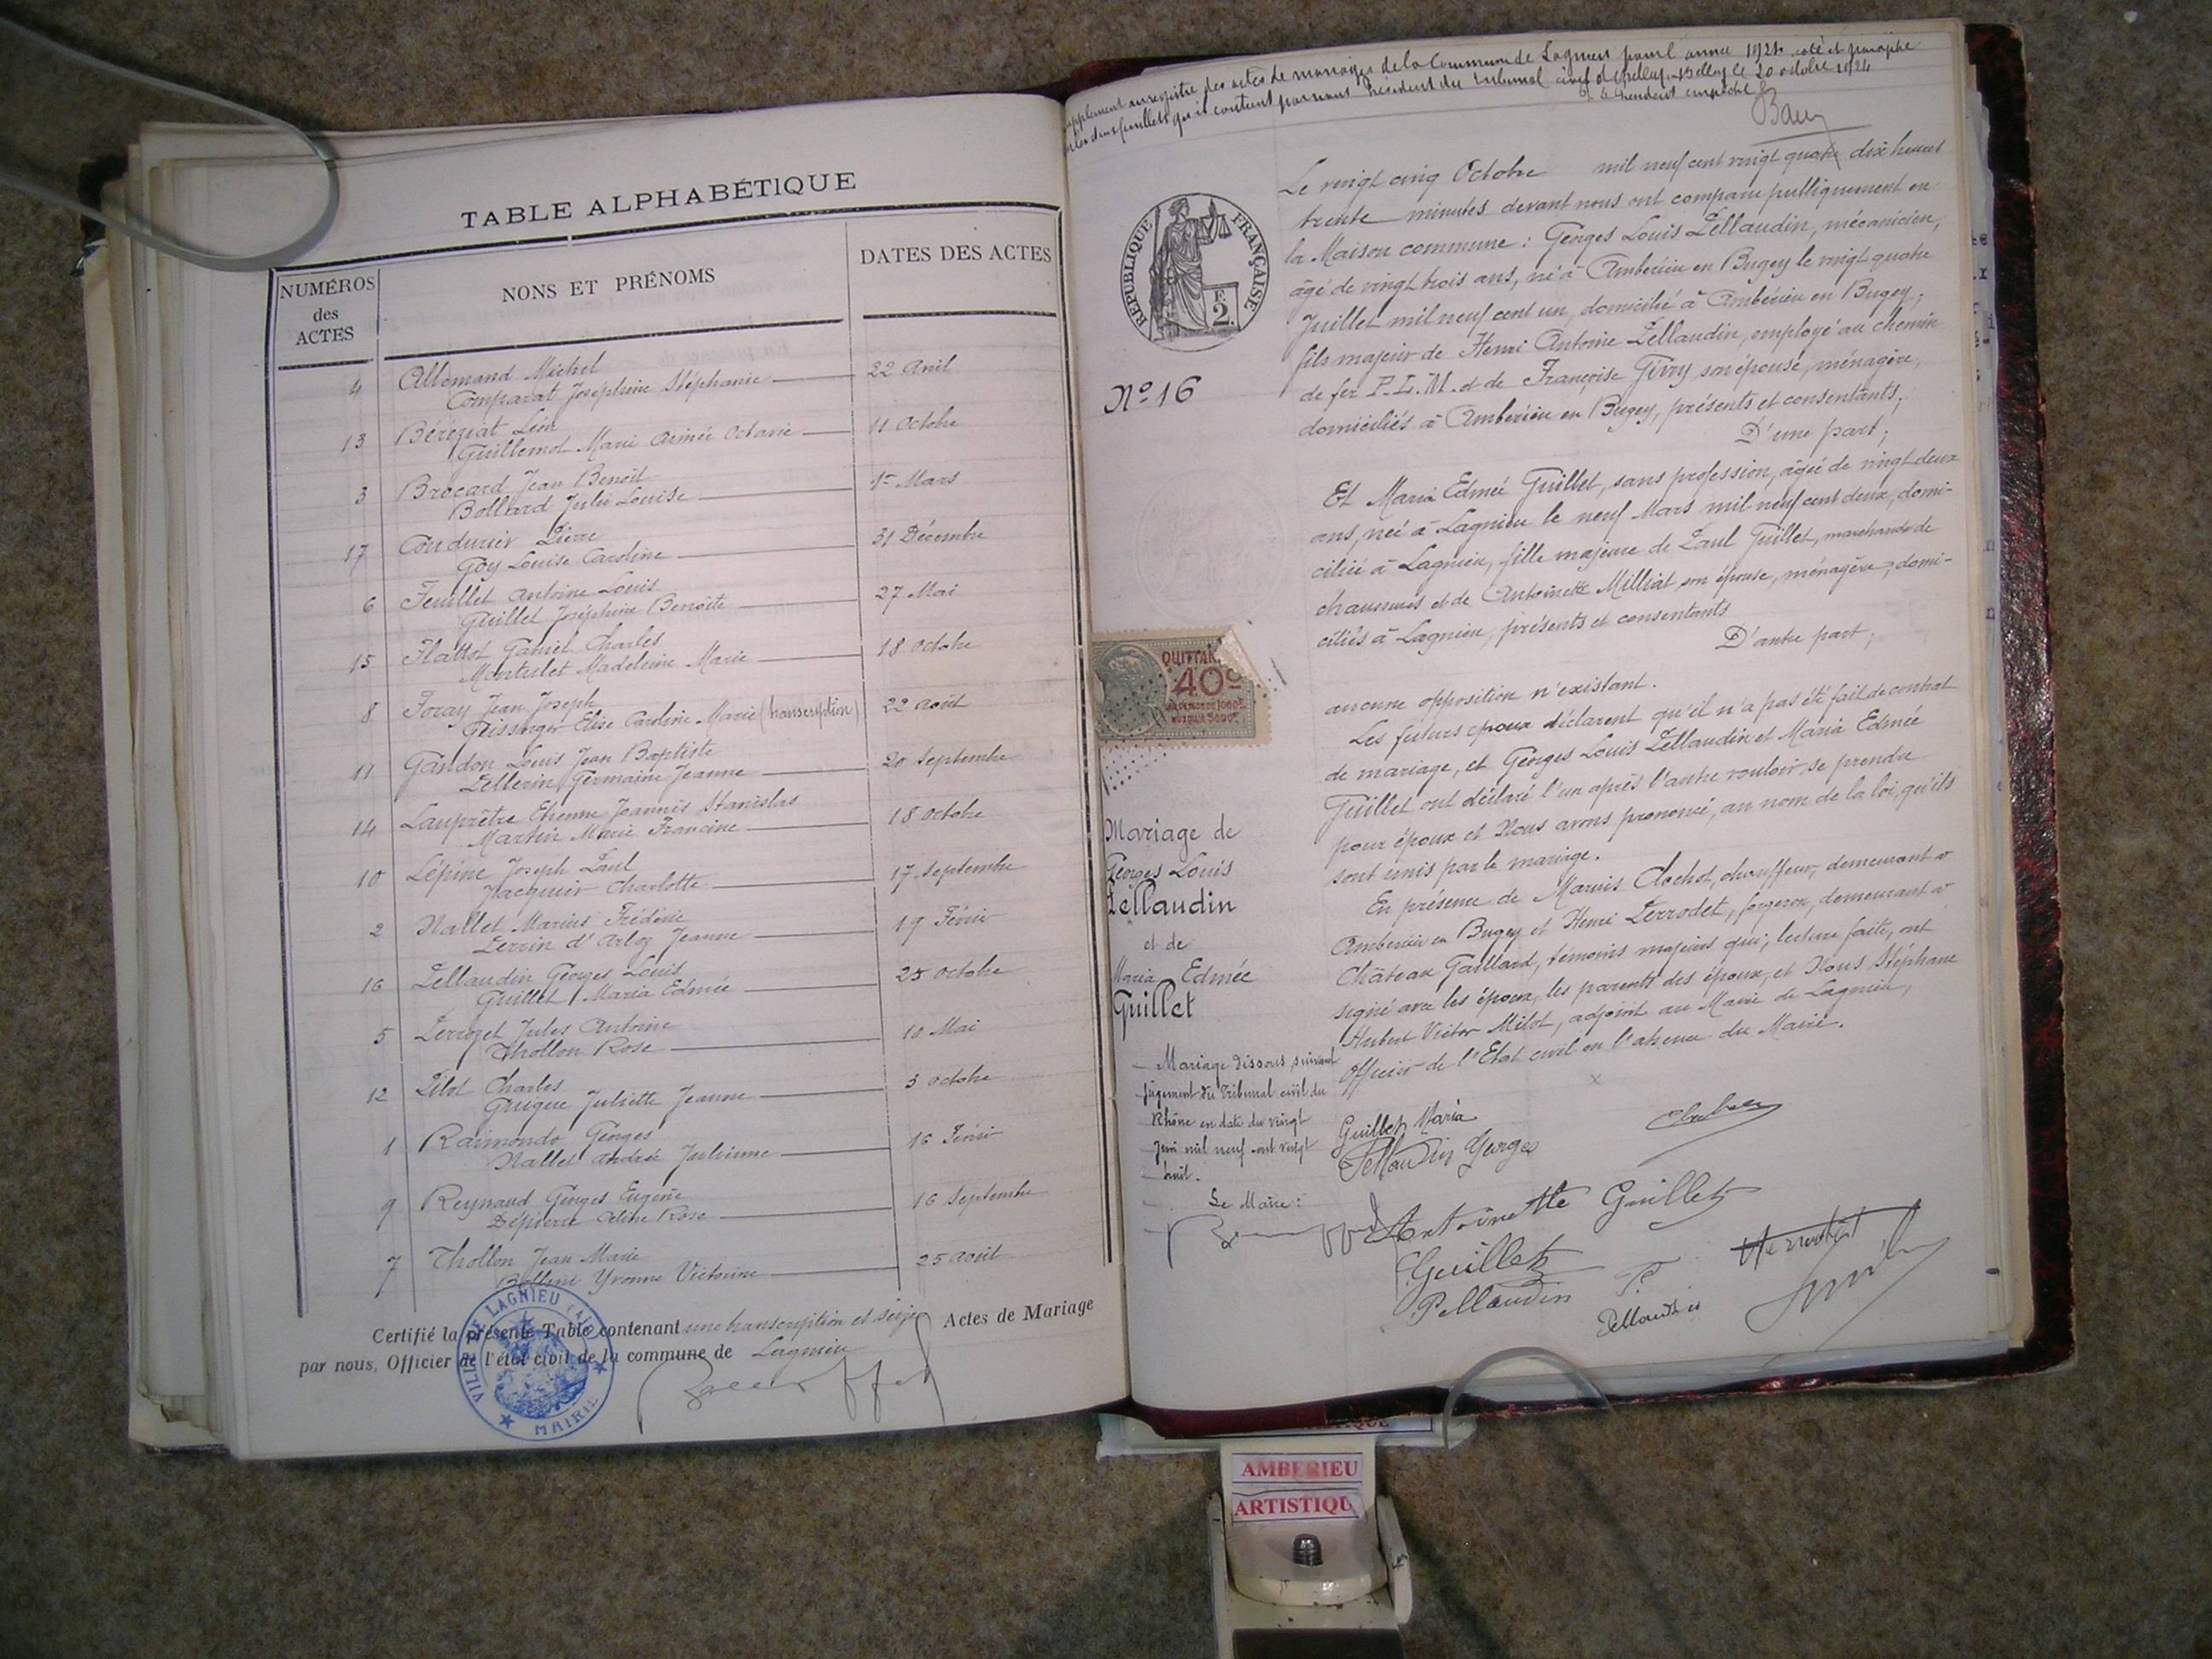 TABLE ALPHABÉTIQUE
NUMÉROS des ACTES
NONS ET PRÉNOMS
DATES DES ACTES
4 Allemand Michel
Comparat Joséphine Stéphanie 22 Avril
13 Béréziat Léon
Guillemot Marie Aimée Octavie 11 Octobre
3 Brocard Jean Benoît
Bollard Julie Louise 1er Mars
17 Coudurier Pierre
Goy Louise Caroline 31 Décembre
6 Feuillet Antoine Louis
Guillet Joséphine Benoîte 27 Mai
15 Flattot Gabriel Charles
Montulet Madeleine Marie 18 Octobre
8 Foray Jean Joseph
Elise Caroline Marie (transcription) 22 Août
11 Gandon Louis Jean Baptiste
Pellerin Germaine Jeanne 20 Septembre
14 Lauprêtre Etienne Joannès Stanislas
Martin Marie Francine 18 Octobre
10 Lépine Joseph Paul
Jacquier Charlotte 17 Septembre
2 Nallet Marius Frédéric
Perrin d'Arloz Jeanne 19 Février
16 Pellaudin Georges Louis
Guillet Maria Edmée 25 Octobre
5 Perrozet Jules Antoine
Thollon Rose 10 Mai
12 Pilot Charles
Juliette Jeanne 3 Octobre
1 Raimondo Georges
Nallet Andrée Julienne 16 Février
9 Reynaud Georges Eugène
Dépierre Céline Rose 16 Septembre
7 Thollon Jean Marie
Yvonne Victorine 25 Août
Certifié la présente Table contenant une transcription et seize Actes de Mariage
par nous, Officier de l'état civil de la commune de Lagnieu
VILLE DE LAGNIEU (AIN)
MAIRIE
Supplément au registre des actes de mariages de la Commune de Lagnieu pour l'année 1924, coté et paraphé
feuillets qu'il contient par nous Président du tribunal civil de Belley. Belley le 20 octobre 1924
Président empêché
RÉPUBLIQUE FRANÇAISE
F. 2.
Nº 16
Le vingt cinq Octobre mil neuf cent vingt quatre dix heures
trente minutes devant nous ont comparu publiquement en
la Maison commune : Georges Louis Pellaudin, mécanicien,
âgé de vingt trois ans, né à Ambérieu en Bugey le vingt quatre
Juillet mil neuf cent un, domicilié à Ambérieu en Bugey,
fils majeur de Henri Antoine Pellaudin, employé au chemin
de fer P.L.M. et de Françoise Givry son épouse, ménagère,
domiciliés à Ambérieu en Bugey, présents et consentants.
D'une part ;
Et Maria Edmée Guillet, sans profession, âgée de vingt deux
ans, née à Lagnieu le neuf Mars mil neuf cent deux, domi-
ciliée à Lagnieu, fille majeure de Paul Guillet, marchand de
chaussures et de Antoinette Milliat son épouse, ménagère, domi-
ciliés à Lagnieu, présents et consentants
D'autre part ;
aucune opposition n'existant.
Les futurs époux déclarent qu'il n'a pas été fait de contrat
de mariage, et Georges Louis Pellaudin et Maria Edmée
Guillet ont déclaré l'un après l'autre vouloir se prendre
pour époux et Nous avons prononcé, au nom de la loi, qu'ils
sont unis par le mariage.
En présence de Marius Clochet, chauffeur, demeurant à
Ambérieu en Bugey et Henri Perrodet, forgeron, demeurant à
Château Gaillard, témoins majeurs qui, lecture faite, ont
signé avec les époux, les parents des époux, et Nous Stéphane
Hubert Victor Milot, adjoint au Maire de Lagnieu,
Officier de l'Etat civil en l'absence du Maire.
QUITTAN
40c
Mariage de
Georges Louis
Pellaudin
et de
Maria Edmée
Guillet
Mariage dissous suivant
jugement du Tribunal civil du
Rhône en date du vingt
Juin mil neuf cent vingt
huit.
Le Maire :
Guillet Maria
Pellaudin Georges
Antoinette Guillet
Guillet
Pellaudin
Pellaudin
AMBERIEU
ARTISTIQU